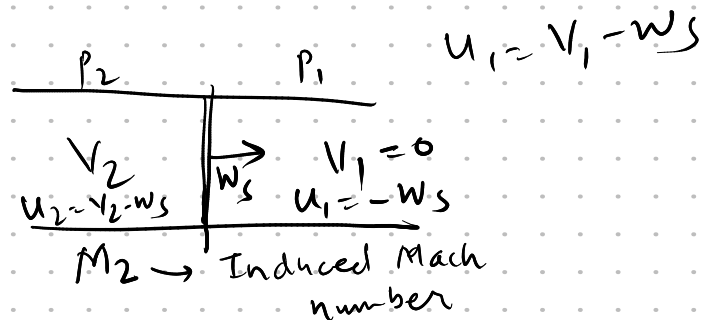 u₁ = V₁ - Ws
P₂ P₁
V₂ Ws V₁ = 0
u₂ = V₂ - Ws u₁ = - Ws
M₂ → Induced Mach
number